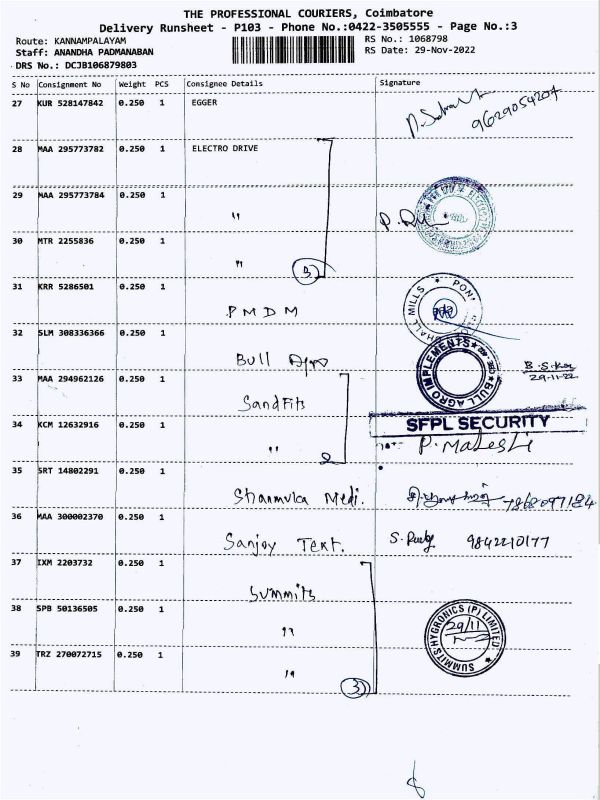 THE PROFESSIONAL COURIERS, Coimbatore
Delivery Runsheet - P103 - Phone No.:0422-3505555 - Page No.:3
Route: KANNAMPALAYAM
RS No.: 1068798
Staff: ANANDHA PADMANABAN
RS Date: 29-Nov-2022
DRS No.: DCJB106879803
S No Consignment No Weight PCS Consignee Details Signature
27 KUR 528147842 0.250 1 EGGER 9629054204
28 MAA 295773782 0.250 1 ELECTRO DRIVE
29 MAA 295773784 0.250 1 "
30 MTR 2255836 0.250 1 "
3
31 KRR 5286501 0.250 1 PMDM
HALL MILLS * PON
32 SLM 308336366 0.250 1 Bull Agro
BULL AGRO IMPLEMENTS
29-11-22
33 MAA 294962126 0.250 1 SandFits
SFPL SECURITY
34 KCM 12632916 0.250 1 "
P. Mahesh
2
35 SRT 14802291 0.250 1 Shanmuka Medi. 7868097184
36 MAA 300002370 0.250 1 Sanjoy Text. 9842210177
37 IXM 2203732 0.250 1 Summits
38 SPB 50136505 0.250 1 "
SUMMITS HYGRONICS (P) LIMITED
29/11
39 TRZ 270072715 0.250 1 "
3